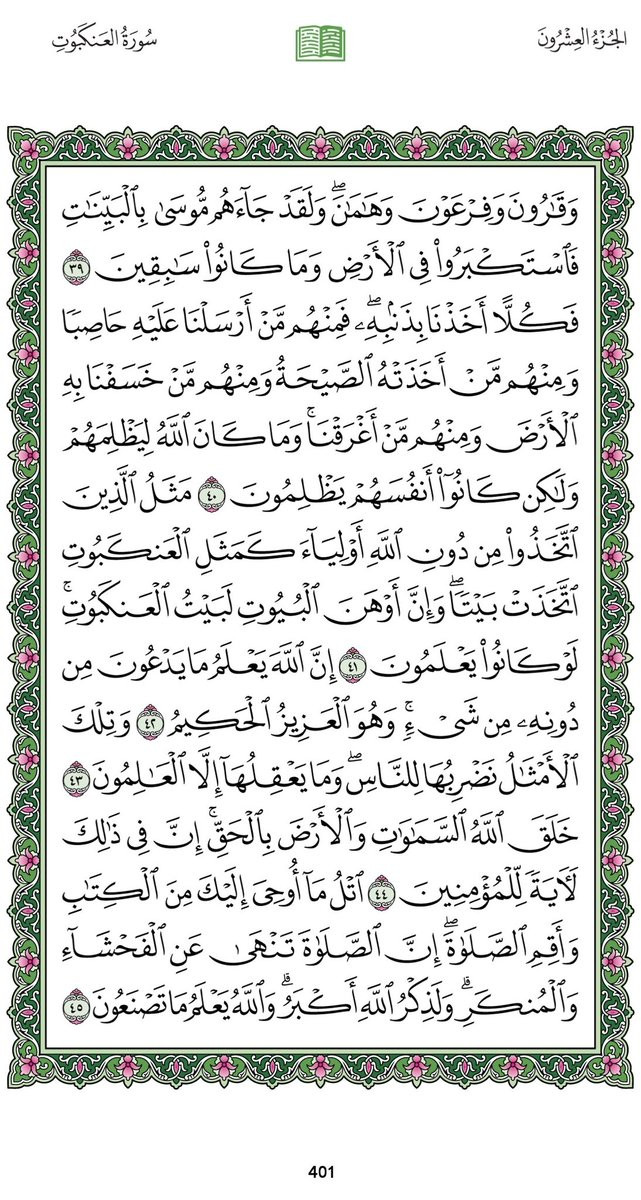 الجُزْءُ العِشْرُونَ
سُورَةُ العَنكَبُوتِ
وَقَٰرُونَ وَفِرْعَوْنَ وَهَٰمَٰنَۖ وَلَقَدْ جَآءَهُم مُّوسَىٰ بِٱلْبَيِّنَٰتِ
فَٱسْتَكْبَرُوا۟ فِى ٱلْأَرْضِ وَمَا كَانُوا۟ سَٰبِقِينَ ٣٩
فَكُلًّا أَخَذْنَا بِذَنۢبِهِۦۖ فَمِنْهُم مَّنْ أَرْسَلْنَا عَلَيْهِ حَاصِبًا
وَمِنْهُم مَّنْ أَخَذَتْهُ ٱلصَّيْحَةُ وَمِنْهُم مَّنْ خَسَفْنَا بِهِ
ٱلْأَرْضَ وَمِنْهُم مَّنْ أَغْرَقْنَاۚ وَمَا كَانَ ٱللَّهُ لِيَظْلِمَهُمْ
وَلَٰكِن كَانُوٓا۟ أَنفُسَهُمْ يَظْلِمُونَ ٤٠ مَثَلُ ٱلَّذِينَ
ٱتَّخَذُوا۟ مِن دُونِ ٱللَّهِ أَوْلِيَآءَ كَمَثَلِ ٱلْعَنكَبُوتِ
ٱتَّخَذَتْ بَيْتًاۖ وَإِنَّ أَوْهَنَ ٱلْبُيُوتِ لَبَيْتُ ٱلْعَنكَبُوتِۚ
لَوْ كَانُوا۟ يَعْلَمُونَ ٤١ إِنَّ ٱللَّهَ يَعْلَمُ مَا يَدْعُونَ مِن
دُونِهِۦ مِن شَىْءٍۚ وَهُوَ ٱلْعَزِيزُ ٱلْحَكِيمُ ٤٢ وَتِلْكَ
ٱلْأَمْثَٰلُ نَضْرِبُهَا لِلنَّاسِۖ وَمَا يَعْقِلُهَآ إِلَّا ٱلْعَٰلِمُونَ ٤٣
خَلَقَ ٱللَّهُ ٱلسَّمَٰوَٰتِ وَٱلْأَرْضَ بِٱلْحَقِّۚ إِنَّ فِى ذَٰلِكَ
لَءَايَةً لِّلْمُؤْمِنِينَ ٤٤ ٱتْلُ مَآ أُوحِىَ إِلَيْكَ مِنَ ٱلْكِتَٰبِ
وَأَقِمِ ٱلصَّلَوٰةَۖ إِنَّ ٱلصَّلَوٰةَ تَنْهَىٰ عَنِ ٱلْفَحْشَآءِ
وَٱلْمُنكَرِۗ وَلَذِكْرُ ٱللَّهِ أَكْبَرُۗ وَٱللَّهُ يَعْلَمُ مَا تَصْنَعُونَ ٤٥
401